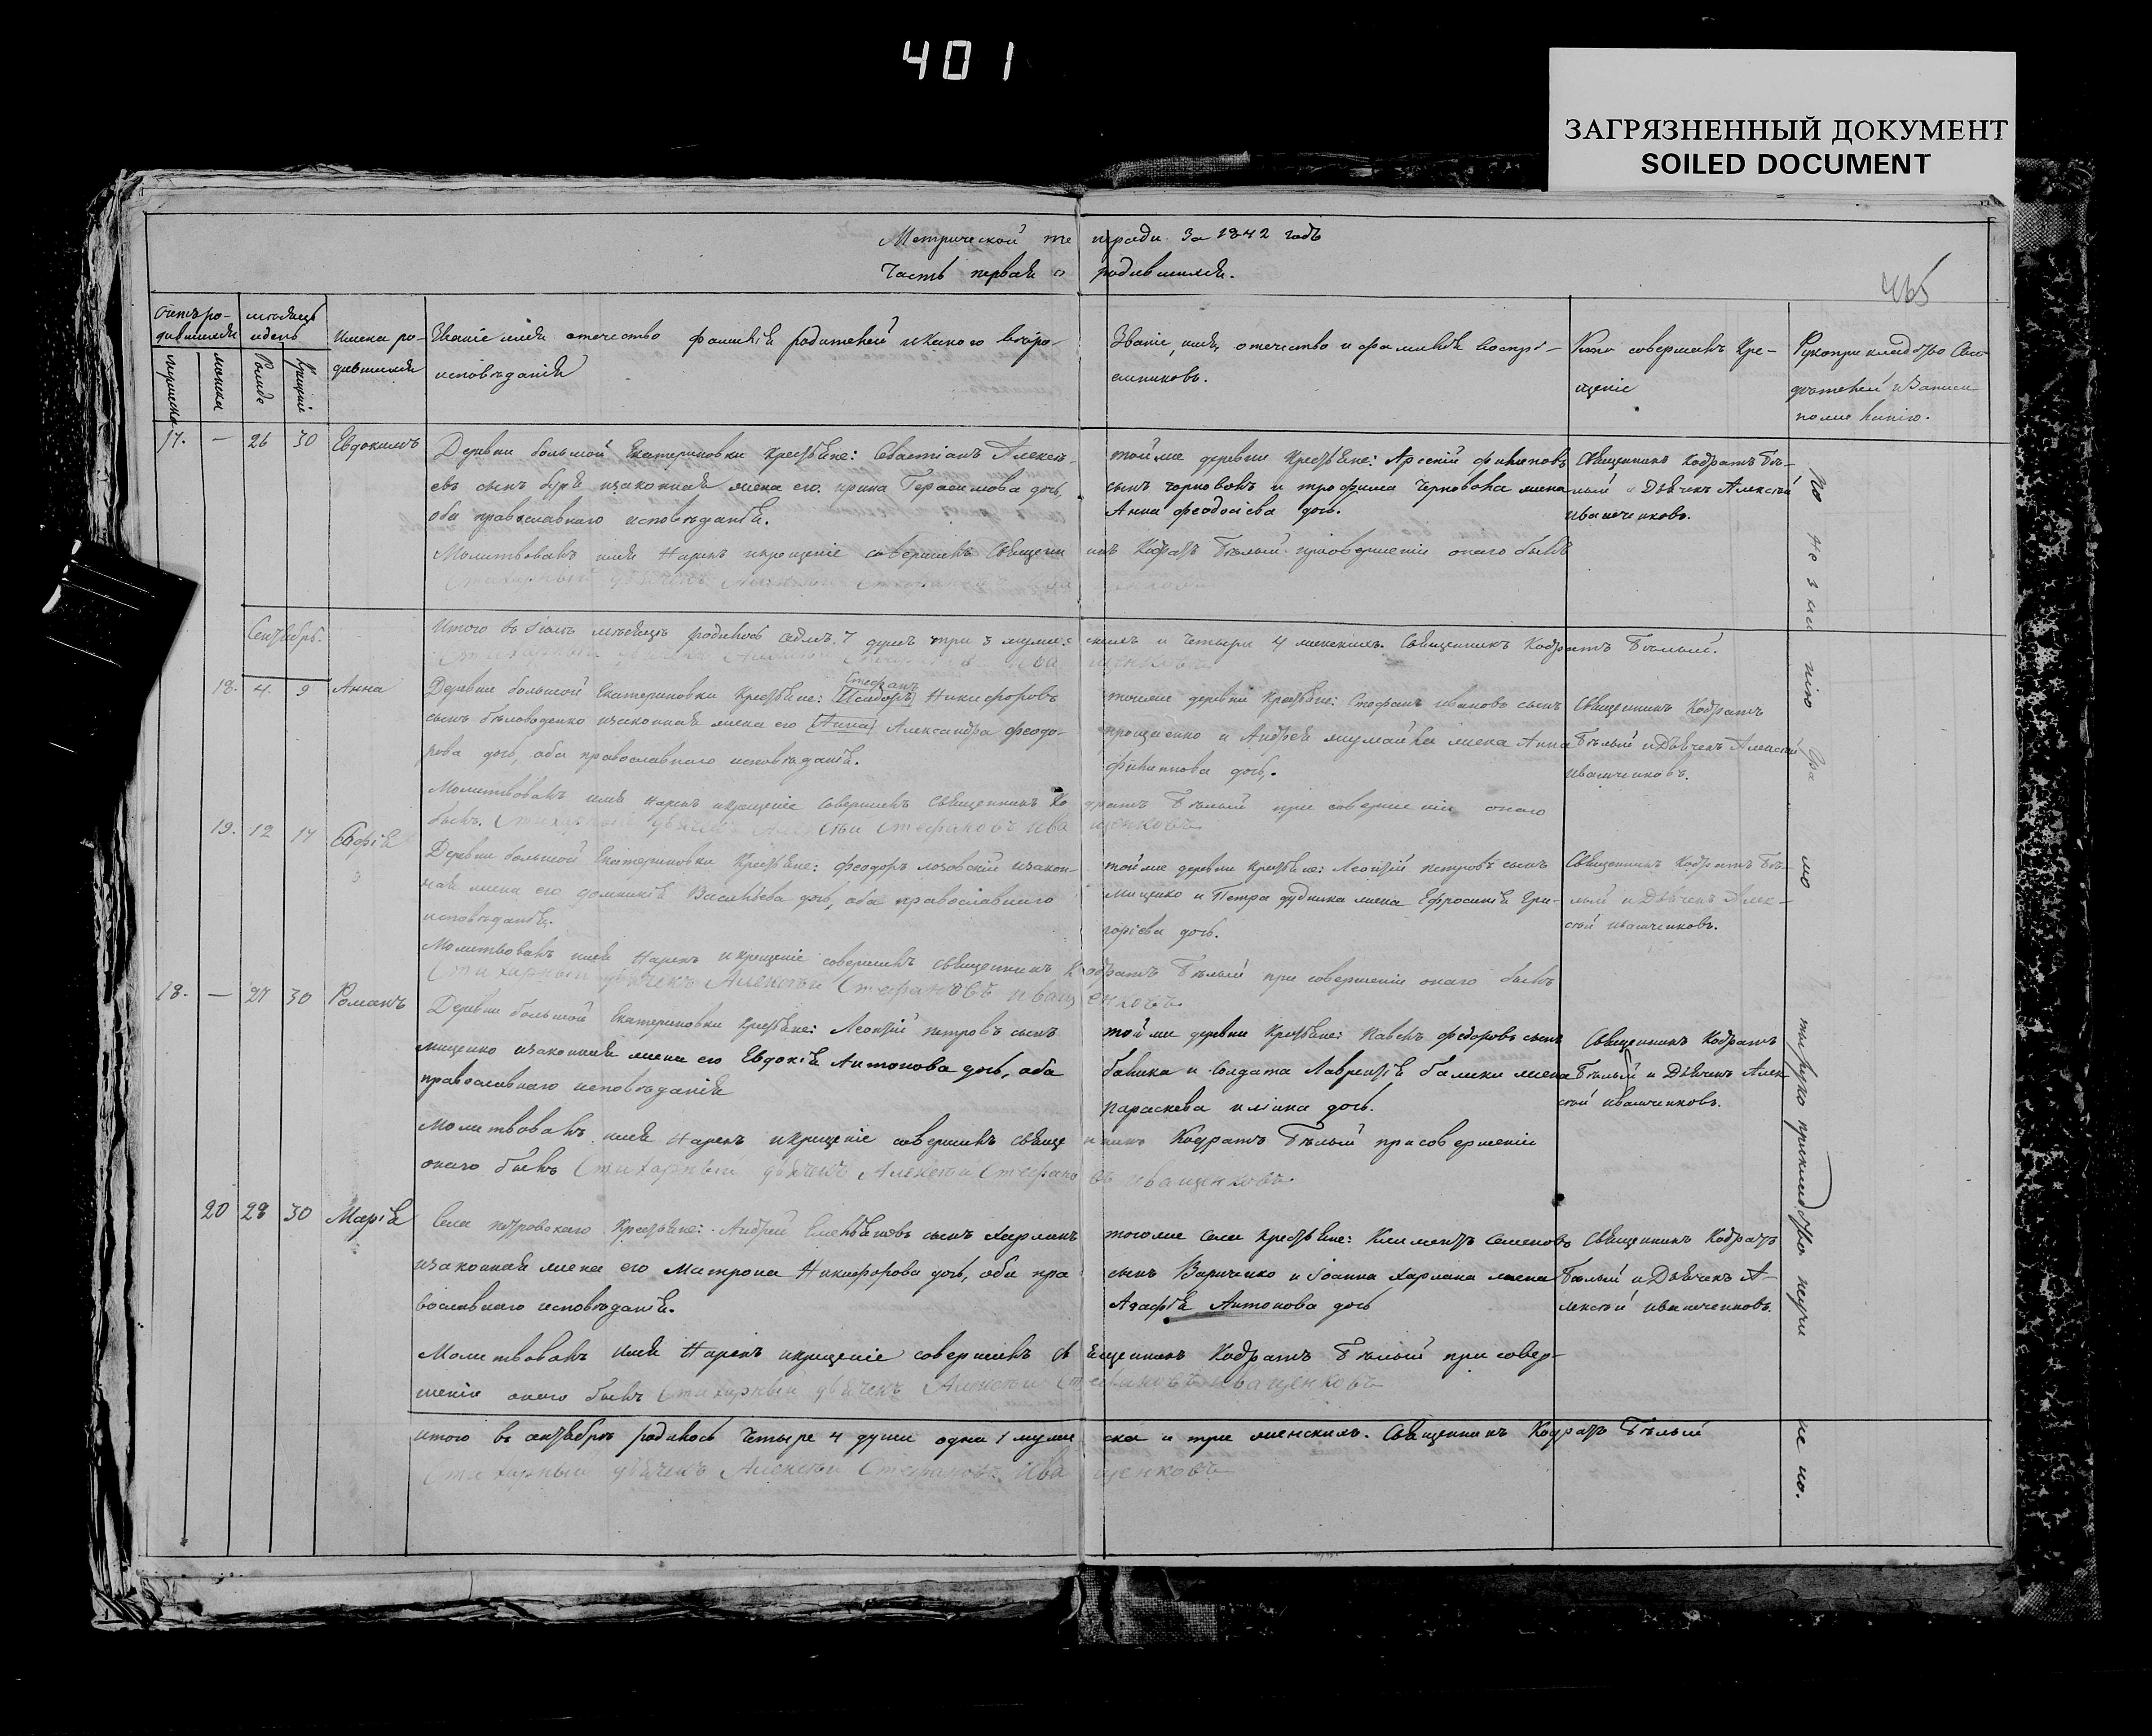 401
ЗАГРЯЗНЕННЫЙ ДОКУМЕНТ
SOILED DOCUMENT
Метрической тетради за 1842 годъ
Часть первая о родившихся.
465
Счетъ родившихся
мѣсяцъ и день
Имена родившихся
Званіе имя отечество фамилія родителей и какого вѣроисповѣданія
Званіе, имя, отечество и фамилія воспріемниковъ.
Кто совершалъ Крещеніе
Рукоприкладство Свидѣтелей
17. — 26 30 Евдокимъ
Деревни большой Екатериновки Крестьяне: Севастіанъ Алексѣевъ сынъ и законная жена его Ирина Герасимова дочь,
оба православнаго исповѣданія.
той же деревни Крестьяне: Арсеній Филиповъ
сынъ и Трофима жена
Анна Феодосіева дочь.
Священникъ Кодратъ Бѣлый и Дьячекъ Алексѣй
Иващенковъ.
Молитвовалъ имя Нарекъ и крещеніе совершилъ Священникъ Кодратъ Бѣлый при совершеніи онаго былъ
Стихарный дьячекъ Алексѣй Стефановъ Иващенковъ
Сентябрь.
Итого въ мѣсяцѣ родилось седмь 7 душъ три 3 мужескихъ и четыри 4 женскихъ. Священникъ Кодратъ Бѣлый.
Стихарный дьячекъ Алексѣй Стефановъ Иващенковъ
18. 4. 9 Анна
Стефанъ
Деревни большой Екатериновки Крестьяне: Исидоръ Никифоровъ
сынъ Бѣловоденко и законная жена его Анна Александра Феодорова дочь, оба православнаго исповѣданія.
той же деревни Крестьяне: Стефанъ Ивановъ сынъ
и Андрея жена Анна
Филипова дочь.
Священникъ Кодратъ
Бѣлый и Дьячекъ Алексѣй
Иващенковъ.
Молитвовалъ имя Нарекъ и крещеніе совершилъ Священникъ Кодратъ Бѣлый при совершеніи онаго
былъ. Стихарный дьячекъ Алексѣй Стефановъ Иващенковъ
19. 12 17 Софія
Деревни большой Екатериновки Крестьяне: Феодоръ Лозовскій и законная жена его Домникія Васильева дочь, оба православнаго
исповѣданія.
той же деревни Крестьяне: Леонтій Петровъ сынъ
Мищенко и Петра Дудника жена Ефросинія Григорієва дочь.
Священникъ Кодратъ Бѣлый и Дьячекъ Алексѣй Иващенковъ.
Молитвовалъ имя Нарекъ и крещеніе совершилъ священникъ Кодратъ Бѣлый при совершеніи онаго былъ
Стихарный дьячекъ Алексѣй Стефановъ Иващенковъ
18. — 27 30 Романъ
Деревни большой Екатериновки Крестьяне: Леонтій Петровъ сынъ
Мищенко и законная жена его Евдокія Антонова дочь, оба
православнаго исповѣданія
той же деревни Крестьяне: Павелъ Федоровъ сынъ
и Солдата Лаврентія жена
Параскева дочь.
Священникъ Кодратъ
Бѣлый и Дьячекъ Алексѣй Иващенковъ.
Молитвовалъ имя Нарекъ и крещеніе совершилъ священникъ Кодратъ Бѣлый при совершеніи
онаго былъ Стихарный дьячекъ Алексѣй Стефановъ Иващенковъ
20 28 30 Марія
Села Петровскаго Крестьяне: Андрей Емельяновъ сынъ Харланъ
и законная жена его Матрона Никифорова дочь, оба православнаго исповѣданія.
того же Села Крестьяне: Климентъ Семеновъ
сынъ Вариченко и Іоанна Харлана жена
Агафія Антонова дочь
Священникъ Кодратъ
Бѣлый и Дьячекъ Алексѣй Иващенковъ.
Молитвовалъ имя Нарекъ и крещеніе совершилъ священникъ Кодратъ Бѣлый при совершеніи онаго былъ Стихарный дьячекъ Алексѣй Стефановъ Иващенковъ
итого въ сентябрѣ родилось Четыре 4 души одна 1 мужеска и три женскихъ. Священникъ Кодратъ Бѣлый
Стихарный дьячекъ Алексѣй Стефановъ Иващенковъ
По незнанію грамоты рукоприкладство не